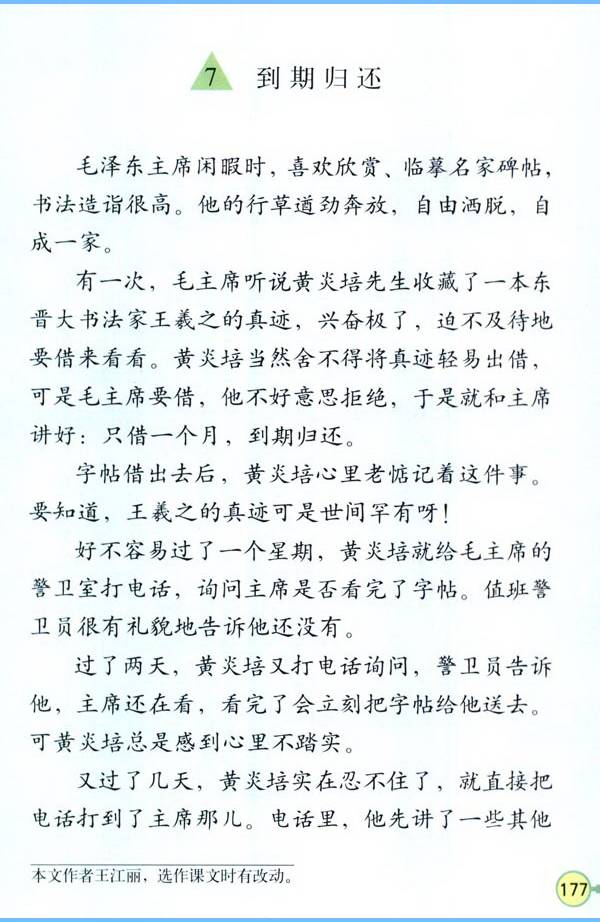 7 到期归还
毛泽东主席闲暇时，喜欢欣赏、临摹名家碑帖，
书法造诣很高。他的行草遒劲奔放，自由洒脱，自
成一家。
有一次，毛主席听说黄炎培先生收藏了一本东
晋大书法家王羲之的真迹，兴奋极了，迫不及待地
要借来看看。黄炎培当然舍不得将真迹轻易出借，
可是毛主席要借，他不好意思拒绝，于是就和主席
讲好：只借一个月，到期归还。
字帖借出去后，黄炎培心里老惦记着这件事。
要知道，王羲之的真迹可是世间罕有呀！
好不容易过了一个星期，黄炎培就给毛主席的
警卫室打电话，询问主席是否看完了字帖。值班警
卫员很有礼貌地告诉他还没有。
过了两天，黄炎培又打电话询问，警卫员告诉
他，主席还在看，看完了会立刻把字帖给他送去。
可黄炎培总是感到心里不踏实。
又过了几天，黄炎培实在忍不住了，就直接把
电话打到了主席那儿。电话里，他先讲了一些其他
本文作者王江丽，选作课文时有改动。
177